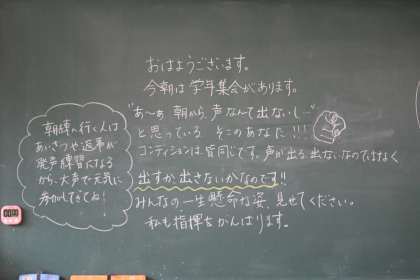 おはようございます。
今朝は学年集会があります。
"あ〜ぁ 朝から、声なんて出ないし…"
と思っている そこのあなた!!!
コンディションは皆同じです。声が出る出ないなのではなく
出すか出さないかなのです!!
みんなの一生懸命な姿、見せてください。
私も指揮をがんばります。
朝練へ行く人は
あいさつや返事が
発声練習になる
から、大声で元気に
参加してきてね!